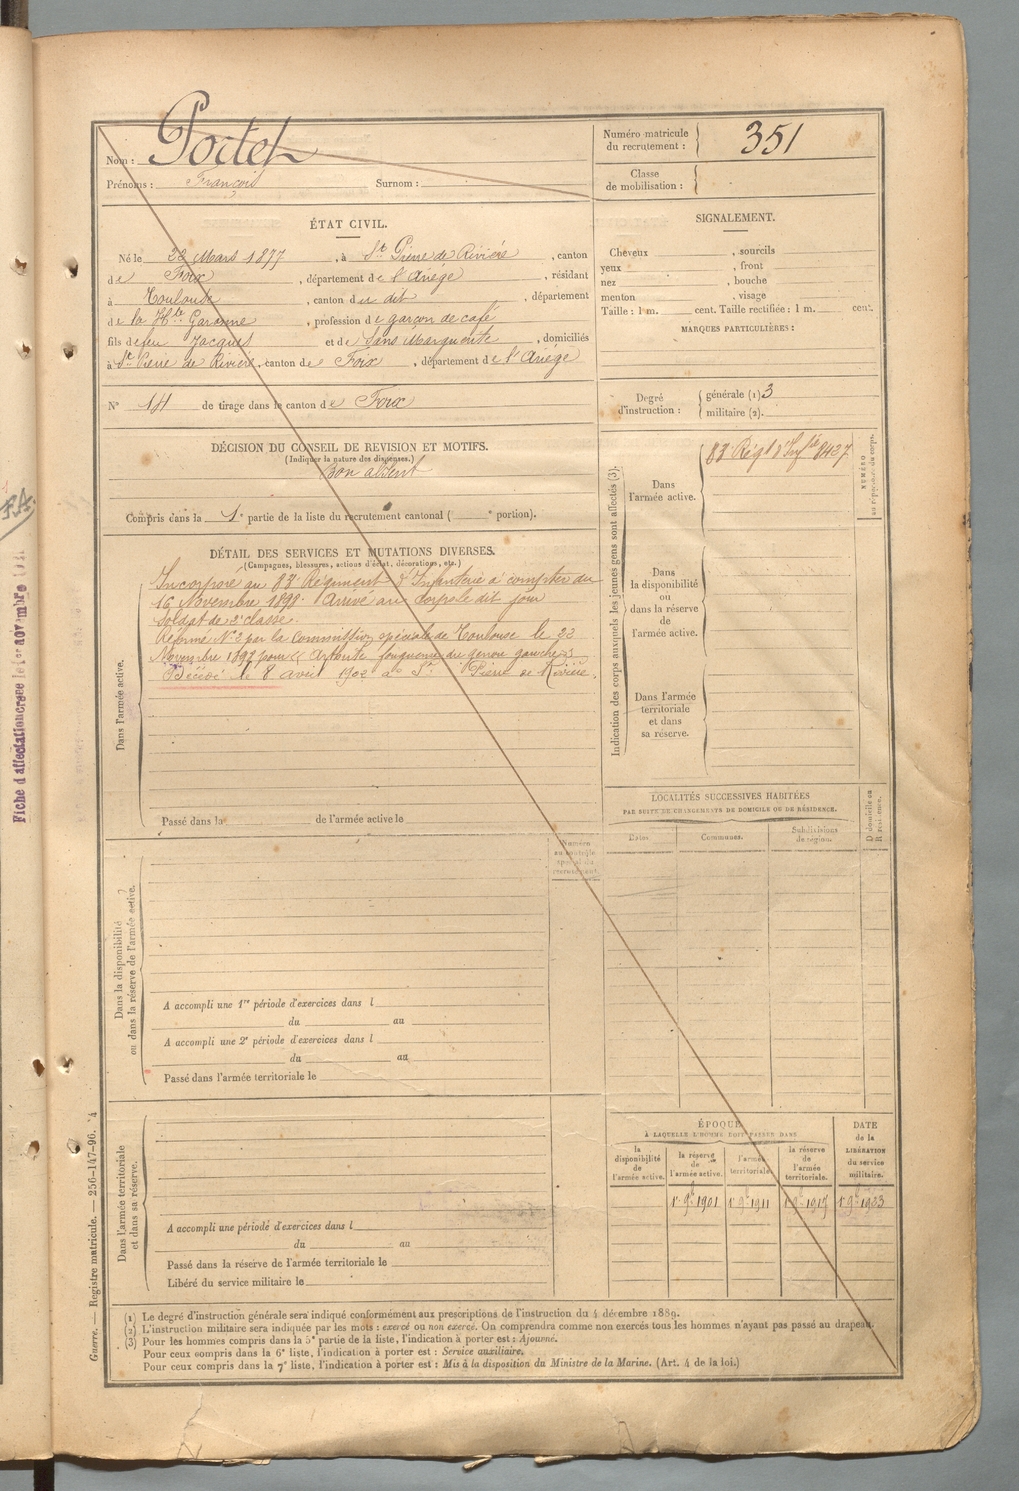 Nom : Portet
Prénoms : François Surnom :
Numéro matricule
du recrutement : 351
Classe
de mobilisation :
ÉTAT CIVIL.
Né le 22 Mars 1877, à St Pierre de Rivière, canton
de Foix, département de l'Ariège, résidant
à Toulouse, canton du dit, département
de la Hte Garonne, profession de garçon de café
fils de feu Jacques et de Sans Marguerite, domiciliés
à St Pierre de Rivière, canton de Foix, département de l'Ariège
N° 14 de tirage dans le canton de Foix
SIGNALEMENT.
Cheveux , sourcils
yeux , front
nez , bouche
menton , visage
Taille : 1 m. cent. Taille rectifiée : 1 m. cent.
MARQUES PARTICULIÈRES :
Degré
d'instruction :
générale (1) 3
militaire (2).
DÉCISION DU CONSEIL DE REVISION ET MOTIFS.
(Indiquer la nature des dispenses.)
Bon absent
Compris dans la 1e partie de la liste du recrutement cantonal ( e portion).
DÉTAIL DES SERVICES ET MUTATIONS DIVERSES.
(Campagnes, blessures, actions d'éclat, décorations, etc.)
Dans l'armée active.
Incorporé au 83e Régiment d'Infanterie à compter du
16 Novembre 1898. Arrivé au Corps le dit jour
Soldat de 2e classe.
Réformé N° 2 par la Commission spéciale de Toulouse le 22
Novembre pour « Arthrite fongueuse du genou gauche »
Décédé le 8 avril 1902 à St Pierre de Rivière.
Passé dans la de l'armée active le
Indication des corps auxquels les jeunes gens sont affectés (3).
Dans
l'armée active.
83 Régt d'Infie 8427
NUMÉRO
au répertoire du corps.
Dans
la disponibilité
ou
dans la réserve
de
l'armée active.
Dans l'armée
territoriale
et dans
sa réserve.
LOCALITÉS SUCCESSIVES HABITÉES
PAR SUITE DE CHANGEMENTS DE DOMICILE OU DE RÉSIDENCE.
Dates. Communes. Subdivisions
de région.
D domicile ou
R résidence.
Numéro
au contrôle
spécial du
recrutement.
Dans la disponibilité
ou dans la réserve de l'armée active.
A accompli une 1re période d'exercices dans l
du au
A accompli une 2e période d'exercices dans l
du au
Passé dans l'armée territoriale le
Dans l'armée territoriale
et dans sa réserve.
A accompli une période d'exercices dans l
du au
Passé dans la réserve de l'armée territoriale le
Libéré du service militaire le
ÉPOQUE
À LAQUELLE L'HOMME DOIT PASSER DANS
la
disponibilité
de
l'armée active.
la réserve
de
l'armée active.
l'armée
territoriale.
la réserve
de
l'armée
territoriale.
DATE
de la
LIBÉRATION
du service
militaire.
1r 9bre 1901 1r 9bre 1911 1r 9bre 1917 1r 9bre 1923
(1) Le degré d'instruction générale sera indiqué conformément aux prescriptions de l'instruction du 4 décembre 1889.
(2) L'instruction militaire sera indiquée par les mots : exercé ou non exercé. On comprendra comme non exercés tous les hommes n'ayant pas passé au drapeau.
(3) Pour les hommes compris dans la 5e partie de la liste, l'indication à porter est : Ajourné.
Pour ceux compris dans la 6e liste, l'indication à porter est : Service auxiliaire.
Pour ceux compris dans la 7e liste, l'indication à porter est : Mis à la disposition du Ministre de la Marine. (Art. 4 de la loi.)
Guerre. — Registre matricule. — 256-147-96.
F.A.
Fiche d'affectation créée le 1er novembre